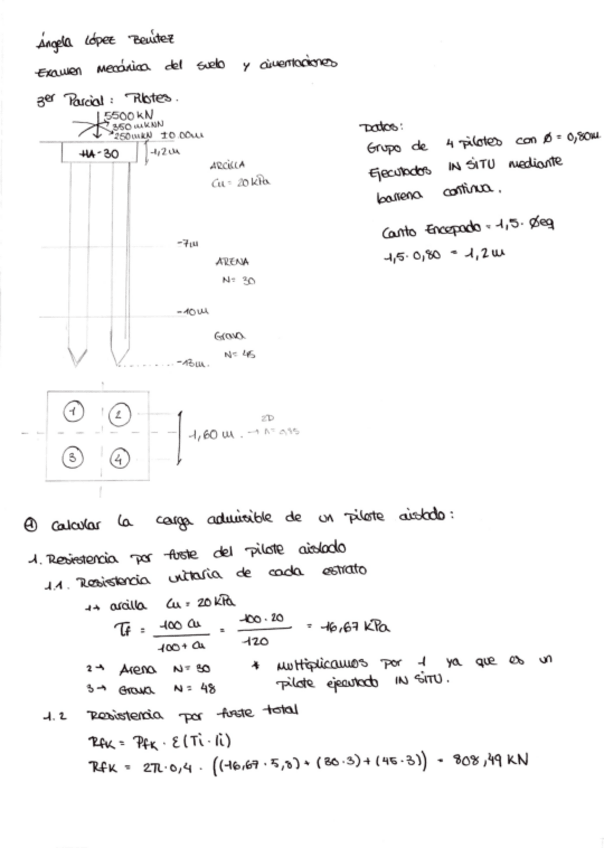 Ángela López Benítez
Examen Mecánica del suelo y cimentaciones
3er Parcial: Pilotes.
5500 KN
350 mKNN
250 mKN ±0.00m
HA-30
1,2m
ARCILLA
Cu = 20 kPa
-7m
ARENA
N= 30
-10m
Grava
N= 45
-13m.
Datos:
Grupo de 4 pilotes con Ø = 0,80m
Ejecutados IN SITU mediante
barrena continua.
Canto Encepado = 1,5 · Øeq
1,5 · 0,80 = 1,2 m
1
2
3
4
1,60 m.
2D
① Calcular la carga admisible de un pilote aislado:
1. Resistencia por fuste del pilote aislado
1.1. Resistencia unitaria de cada estrato
1→ arcilla Cu = 20 kPa
τf = 100 Cu / 100 + Cu = 100 · 20 / 120 = 16,67 KPa
2→ Arena N = 30 * Multiplicamos por 1 ya que es un
3→ Grava N = 48 pilote ejecutado IN SITU.
1.2 Resistencia por fuste total
Rfk = Pfk · Σ(τi · li)
Rfk = 2π · 0,4 · ((16,67 · 5,8) + (30 · 3) + (45 · 3)) = 808,49 KN